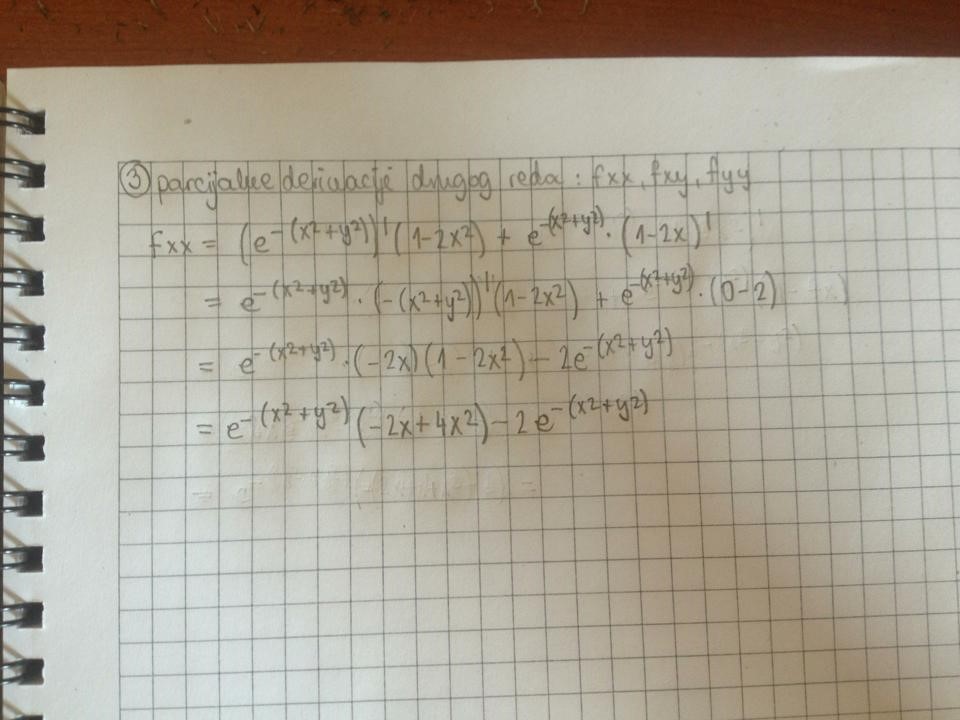 ③ parcijalne derivacije drugog reda: fxx, fxy, fyy
fxx = (e^-(x²+y²))'(1-2x²) + e^-(x²+y²) · (1-2x)'
= e^-(x²+y²) · (-(x²+y²))'(1-2x²) + e^-(x²+y²) · (0-2)
= e^-(x²+y²) · (-2x)(1-2x²) - 2e^-(x²+y²)
= e^-(x²+y²) (-2x+4x²) - 2e^-(x²+y²)